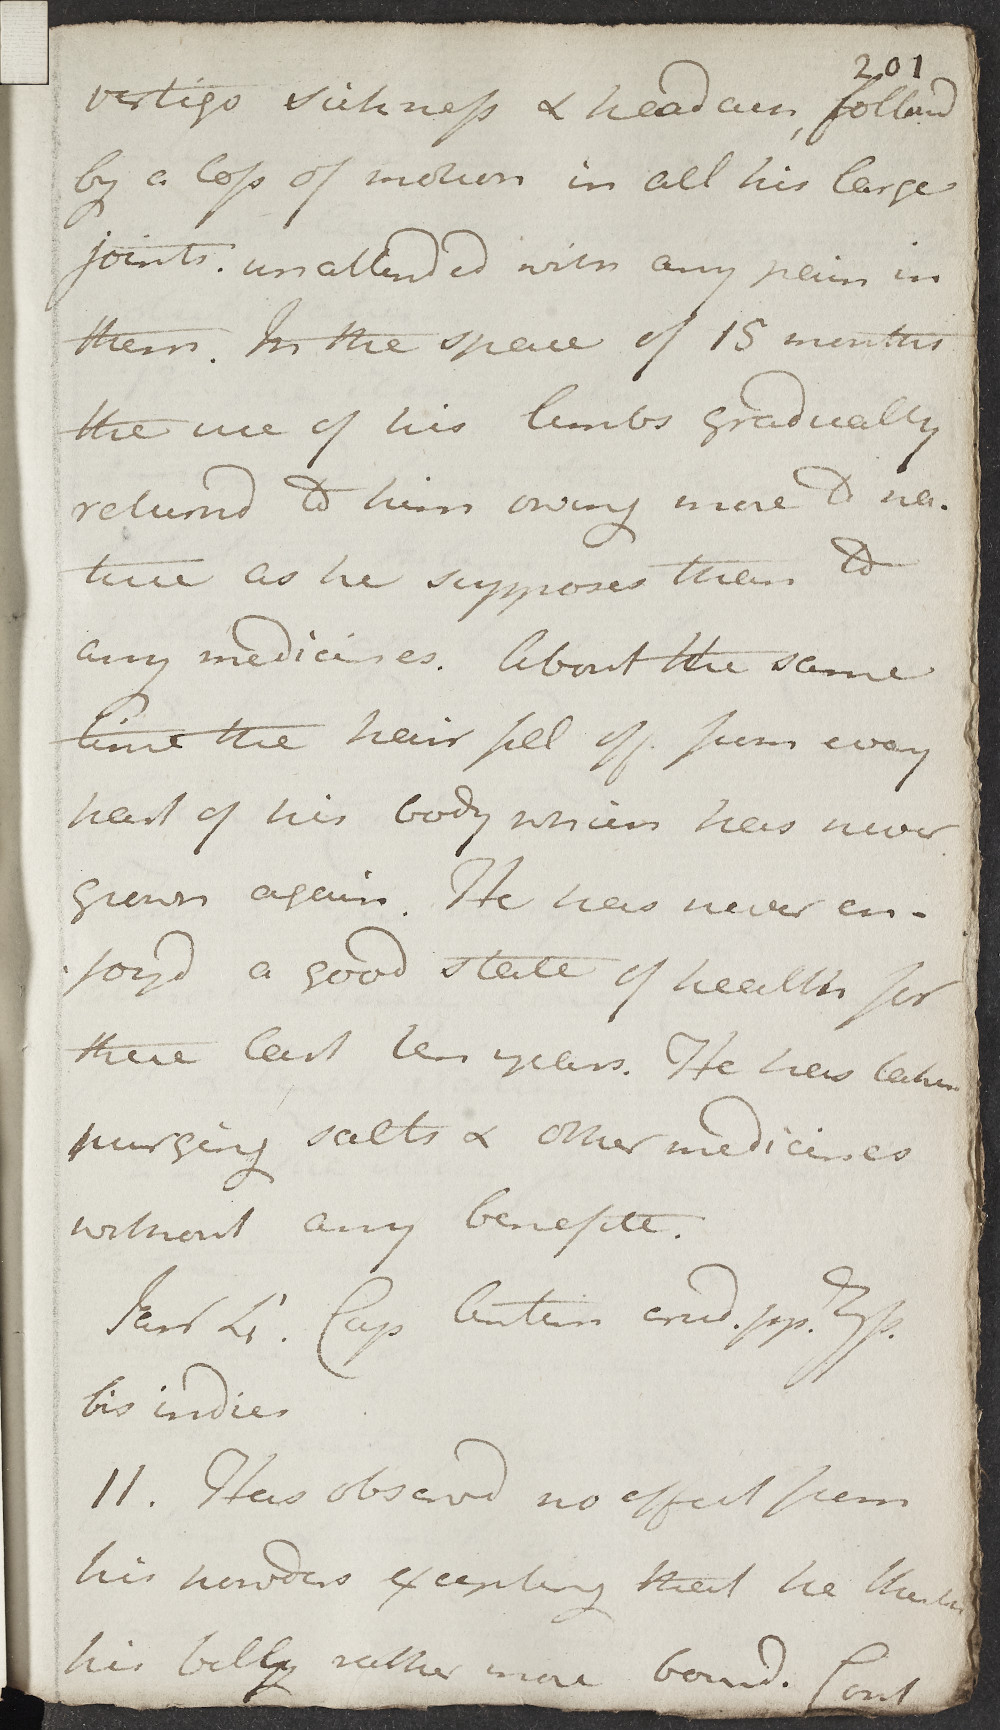 201
vertigo sickness & headach, followd
by a loss of motion in all his large
joints. unattended with any pain in
them. In the space of 15 months
the use of his limbs gradually
returnd to him owing more to na-
ture as he supposes than to
any medicines. About the same
time the hair fell off from every
part of his body which has never
grown again. He has never en-
joyd a good state of health for
these last ten years. He has taken
purging salts & other medicines
without any benefite.
Janr 4. Cap Antim crud. pp. ʒſs.
bis indies
11. Has observd no effect from
his powders excepting that he thinks
his belly rather more bound. Cont